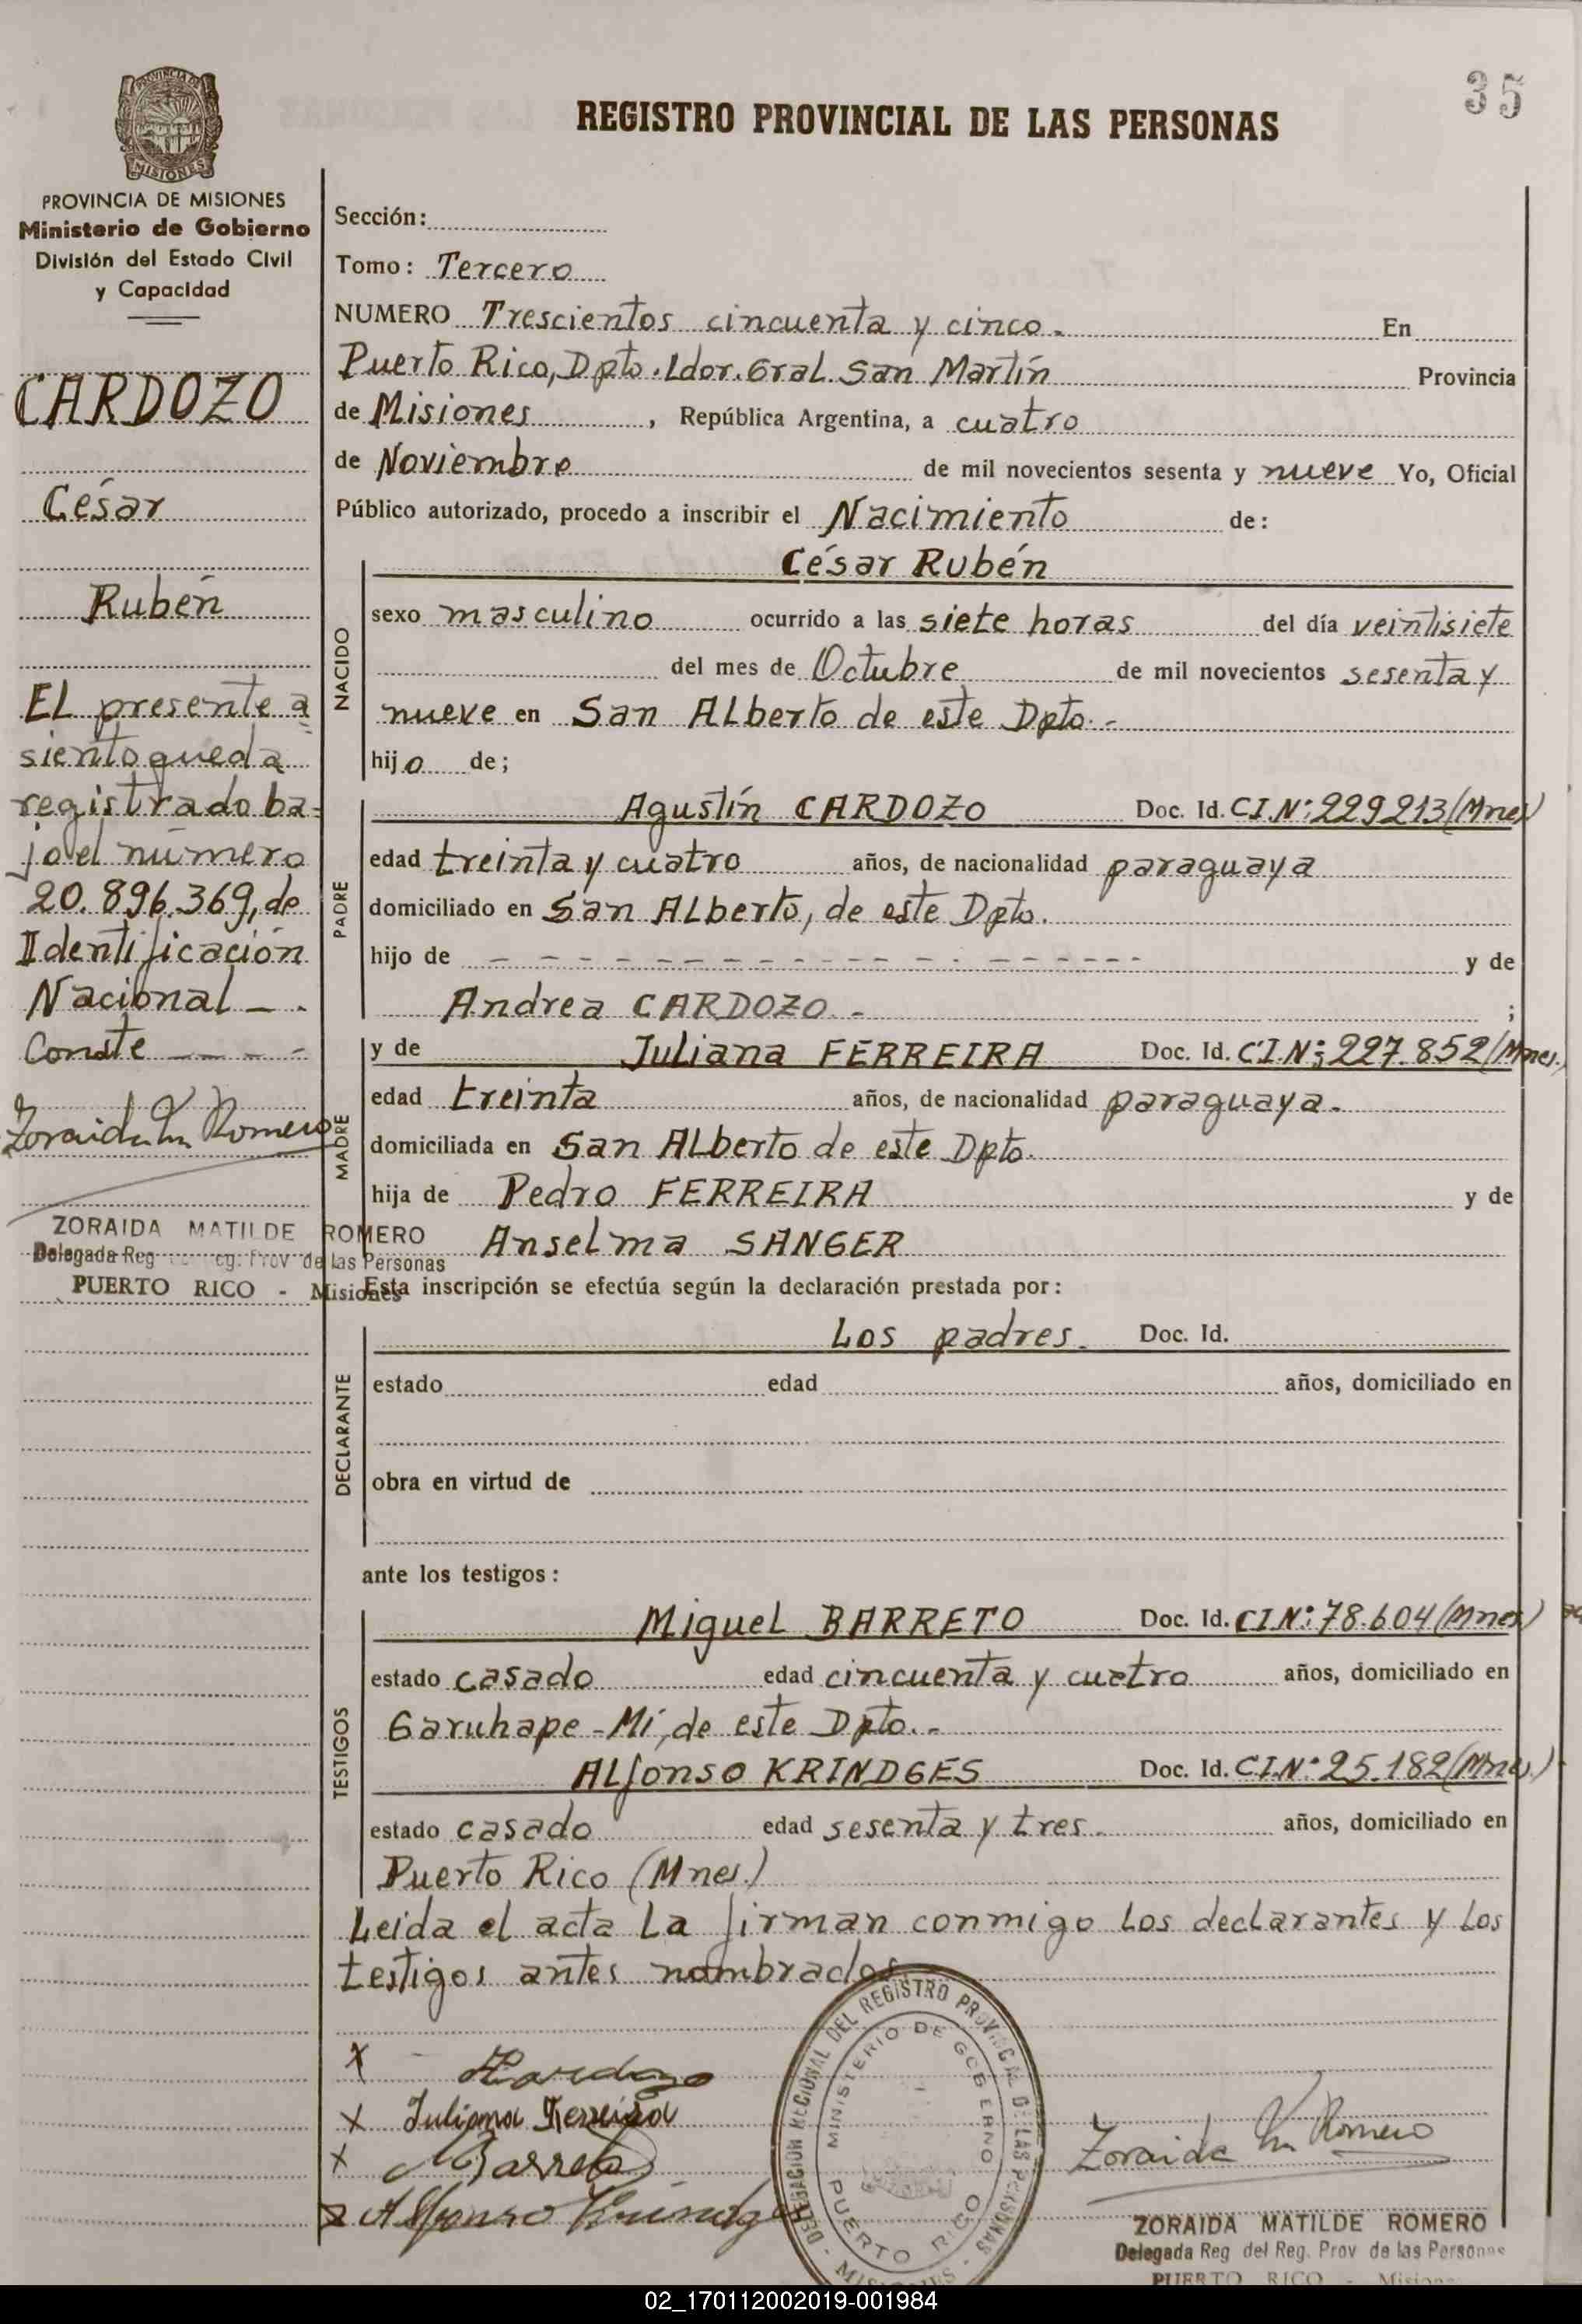 35
REGISTRO PROVINCIAL DE LAS PERSONAS
PROVINCIA DE
MISIONES
PROVINCIA DE MISIONES
Ministerio de Gobierno
División del Estado Civil
y Capacidad
CARDOZO
César
Rubén
El presente a
siento queda
registrado ba=
jo el número
20.896.369, de
Identificación
Nacional - .
Conste - - - -
Zoraida M Romero
ZORAIDA MATILDE ROMERO
Delegada Reg eg. Prov de las Personas
PUERTO RICO - Misiones
Sección:
Tomo: Tercero
NUMERO Trescientos cincuenta y cinco.- En
Puerto Rico, Dpto. Ldor. Gral. San Martín Provincia
de Misiones , República Argentina, a cuatro
de Noviembre de mil novecientos sesenta y nueve Yo, Oficial
Público autorizado, procedo a inscribir el Nacimiento de:
César Rubén
NACIDO
sexo masculino ocurrido a las siete horas del día veintisiete
del mes de Octubre de mil novecientos sesenta y
nueve en San Alberto de este Dpto.-
hijo de;
PADRE
Agustín CARDOZO Doc. Id. C.I.Nº: 229213 (Mnes)
edad treinta y cuatro años, de nacionalidad paraguaya
domiciliado en San Alberto, de este Dpto.
hijo de - - - - - - - - - - - - - - - - y de
Andrea CARDOZO.- ;
MADRE
y de Juliana FERREIRA Doc. Id. C.I.Nº: 227.852 (Mnes.)
edad treinta años, de nacionalidad paraguaya.-
domiciliada en San Alberto de este Dpto.
hija de Pedro FERREIRA y de
Anselma SANGER
Esta inscripción se efectúa según la declaración prestada por:
DECLARANTE
Los padres. Doc. Id.
estado edad años, domiciliado en
obra en virtud de
ante los testigos:
TESTIGOS
Miguel BARRETO Doc. Id. C.I.Nº: 78.604 (Mnes)
estado casado edad cincuenta y cuatro años, domiciliado en
Garuhape-Mí, de este Dpto..-
Alfonso KRINDGES Doc. Id. C.I.Nº 25.182 (Mnes.)
estado casado edad sesenta y tres. años, domiciliado en
Puerto Rico (Mnes.)
Leida el acta la firman conmigo los declarantes y los
testigos antes nombrados
X Cardozo
X Juliana Ferreira
X Barreto
X Alfonso Krindges
DELEGACION REGIONAL DEL REGISTRO PROVINCIAL DE LAS PERSONAS - MISIONES -
MINISTERIO DE GOBIERNO
PUERTO RICO
Zoraida M Romero
ZORAIDA MATILDE ROMERO
Delegada Reg del Reg. Prov de las Personas
PUERTO RICO - Misiones
02_170112002019-001984